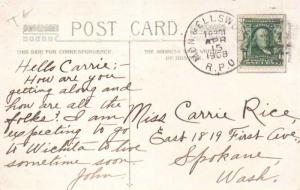 POST CARD.
THIS SIDE FOR CORRESPONDENCE.
THE ADDRESS
APR
15
1908
R.P.O.
Hello Carrie;
How are you
getting along and
how are all the
folks? I am
expecting to go
to Wichita to live
sometime soon.
John.
Miss Carrie Rice,
East 1819 First Ave.,
Spokane,
Wash.